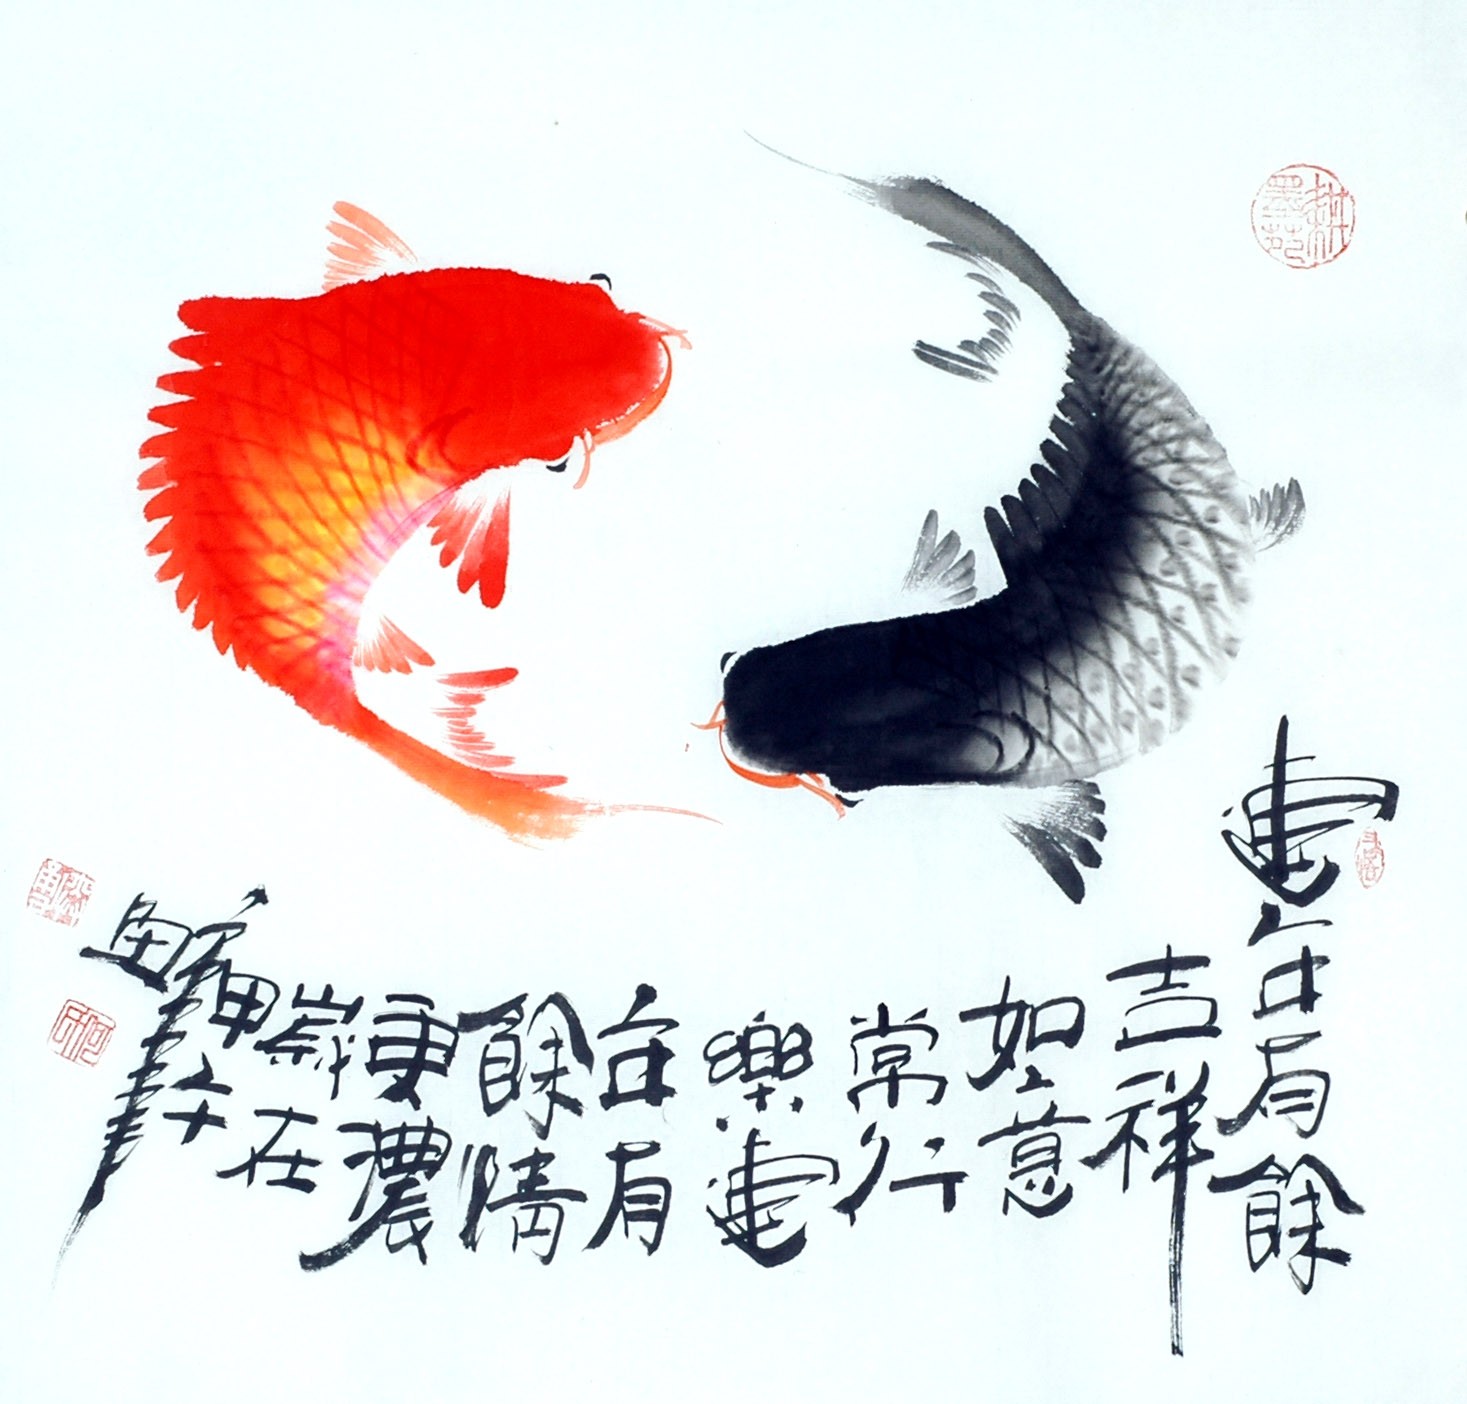 連年有餘
吉祥
如意
常行
樂連
年有
餘情
更濃
歲在
甲午